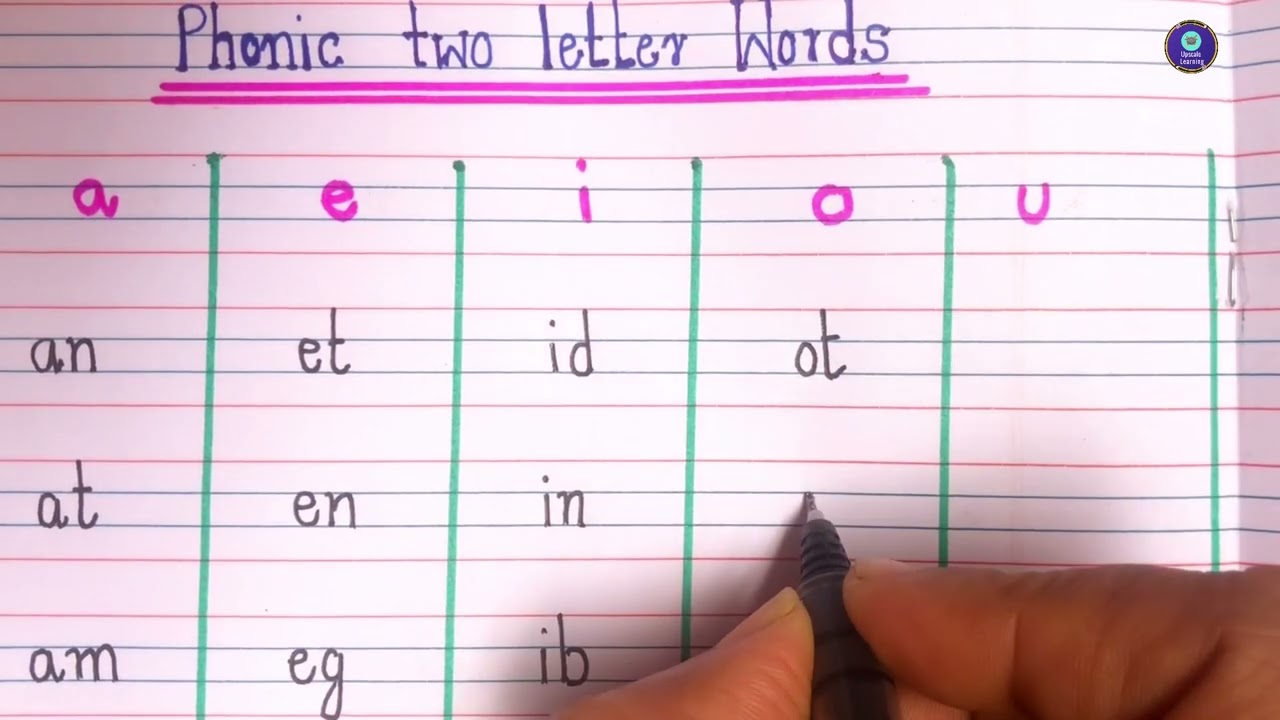 Phonic two letter Words
Upscale
Learning
a e i o u
an et id ot
at en in
am eg ib